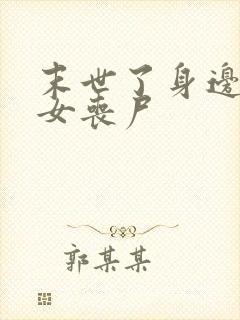 末世了身邊
女喪尸
郭某某